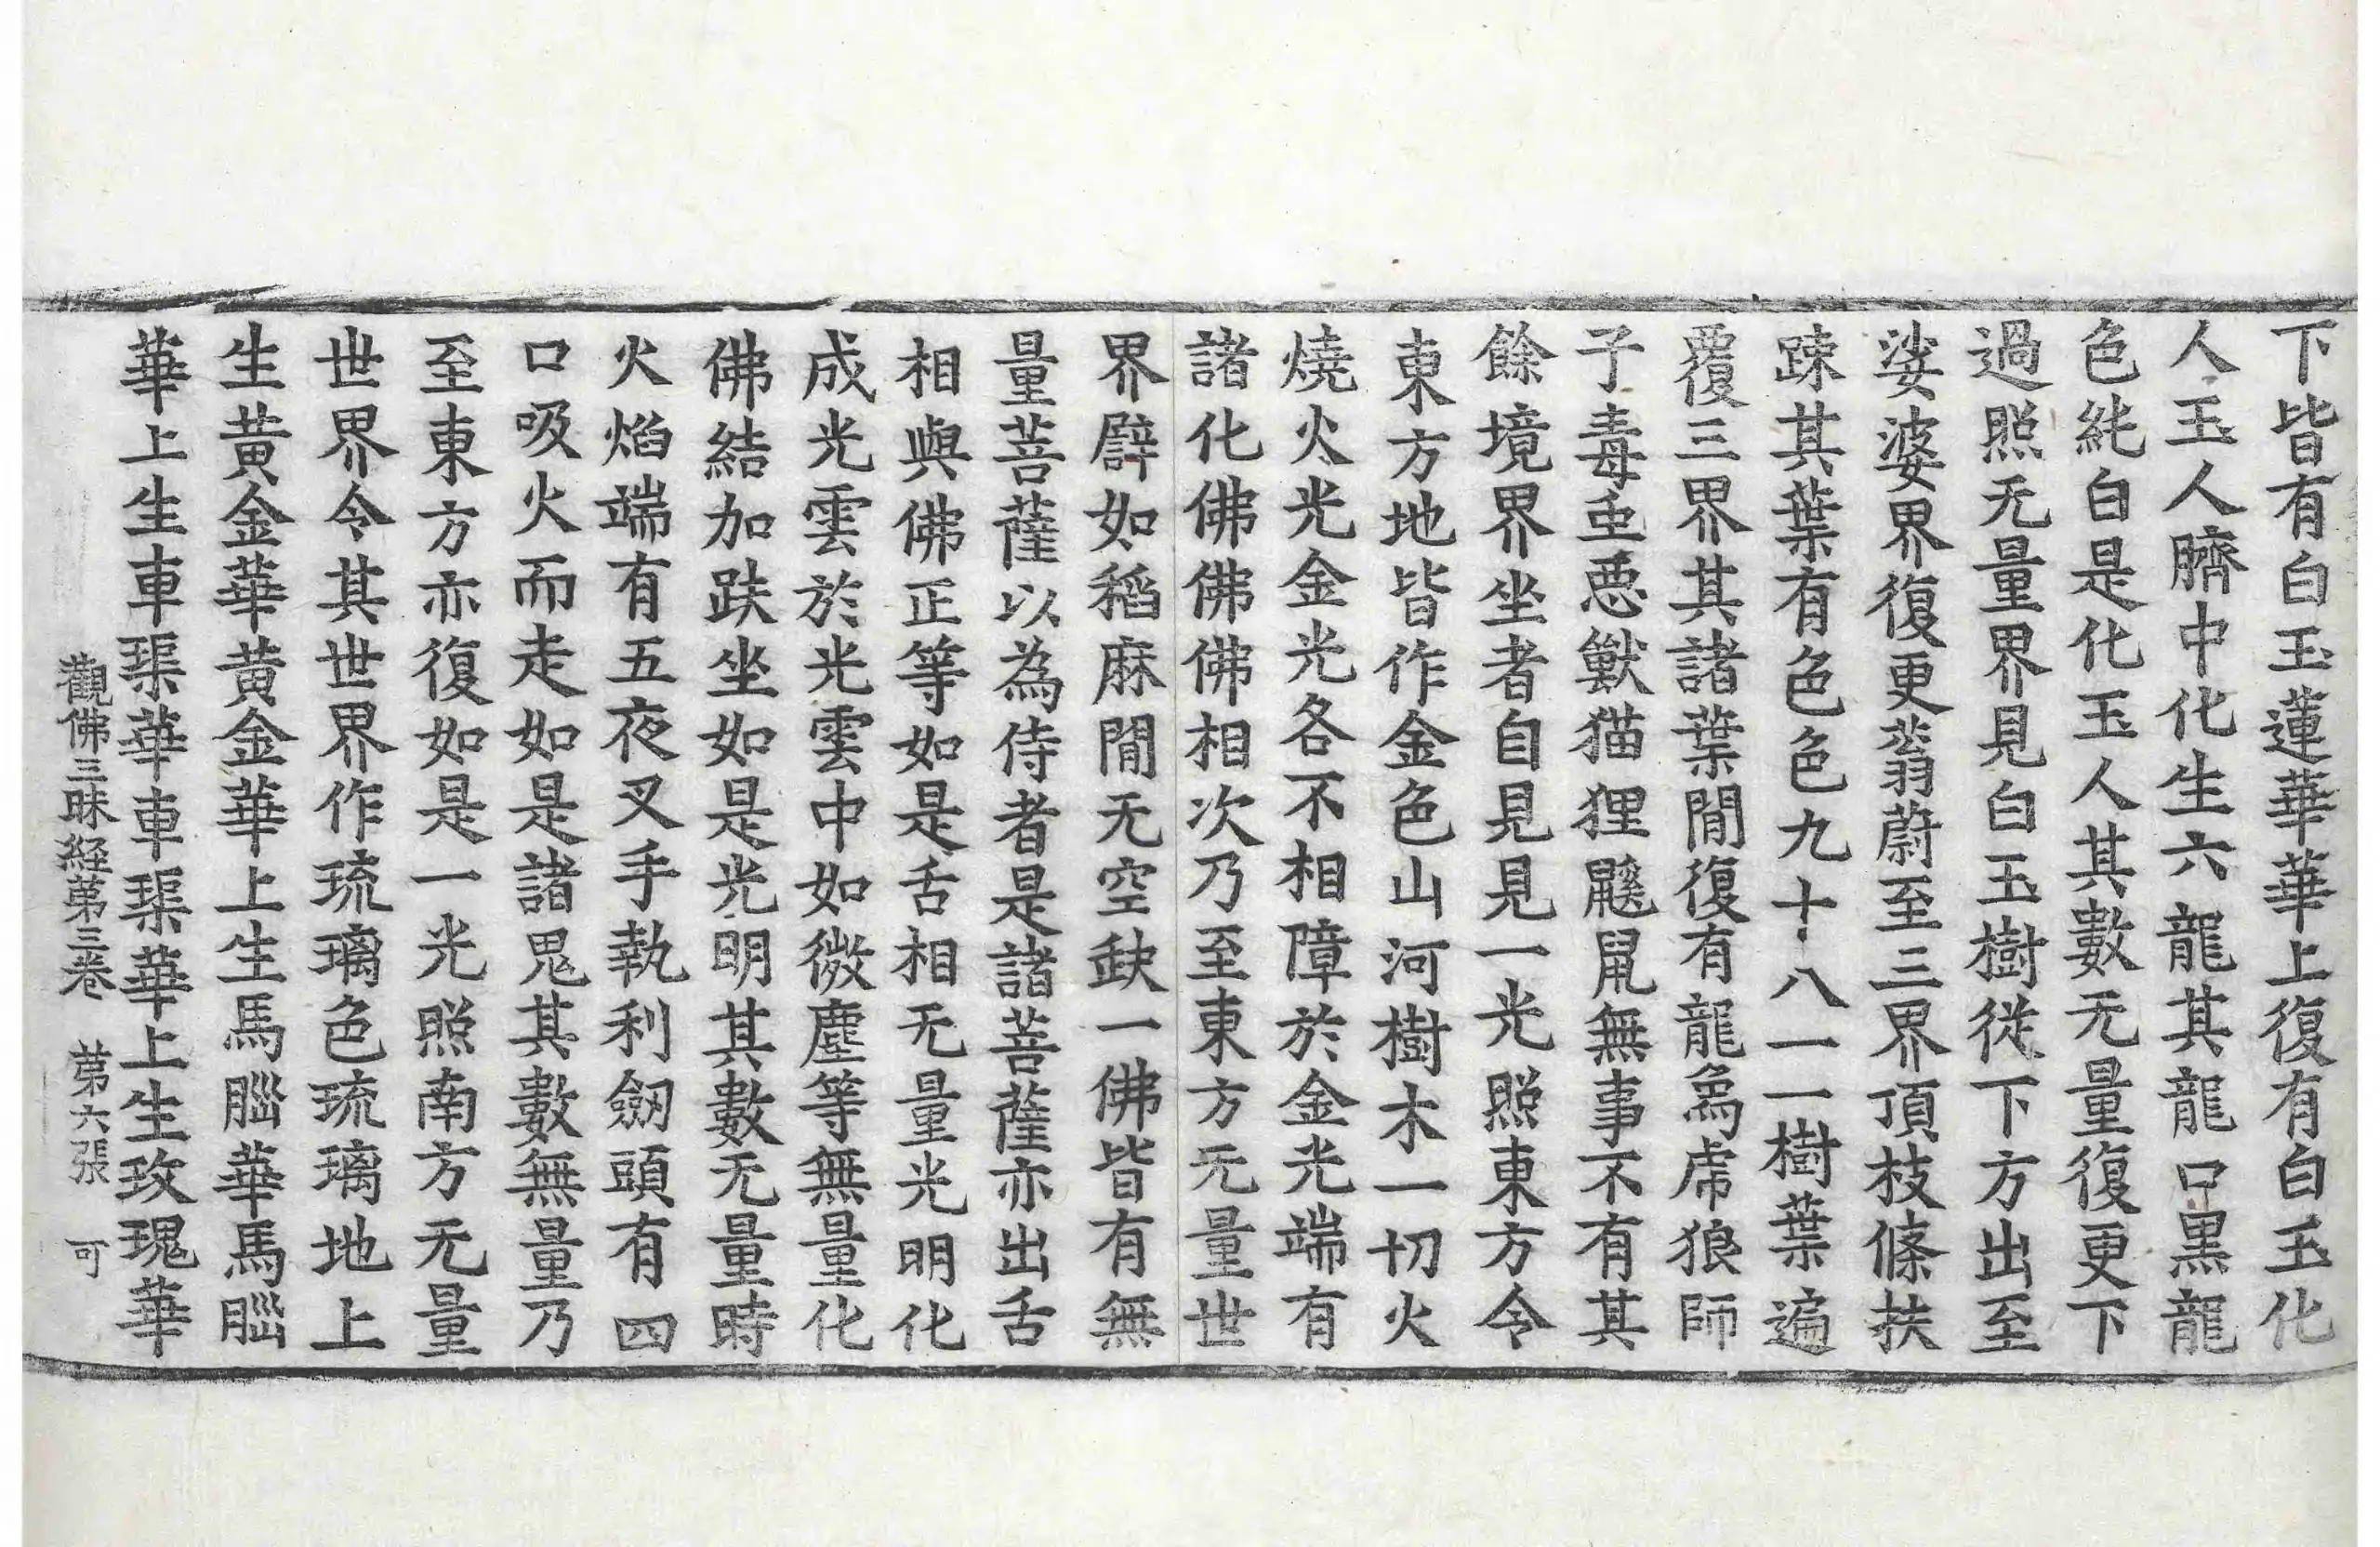 下皆有白玉蓮華華上復有白玉化
人玉人臍中化生六龍其龍口黑龍
色純白是化玉人其數无量復更下
過照无量界見白玉樹從下方出至
娑婆界復更蓊蔚至三界頂枝條扶
踈其葉有色色九十八一一樹葉遍
覆三界其諸葉閒復有龍象虎狼師
子毒虫惡獸猫狸鼷鼠無事不有其
餘境界坐者自見見一光照東方令
東方地皆作金色山河樹木一切火
燒火光金光各不相障於金光端有
諸化佛佛佛相次乃至東方无量世
界譬如稻麻閒无空缺一佛皆有無
量菩薩以為侍者是諸菩薩亦出舌
相與佛正等如是舌相无量光明化
成光雲於光雲中如微塵等無量化
佛結加趺坐如是光明其數无量時
火焰端有五夜叉手執利劒頭有四
口吸火而走如是諸鬼其數無量乃
至東方亦復如是一光照南方无量
世界令其世界作琉璃色琉璃地上
生黄金華黄金華上生馬腦華馬腦
華上生車璖華車璖華上生玫瑰華
觀佛三昧経第三卷　第六張　可